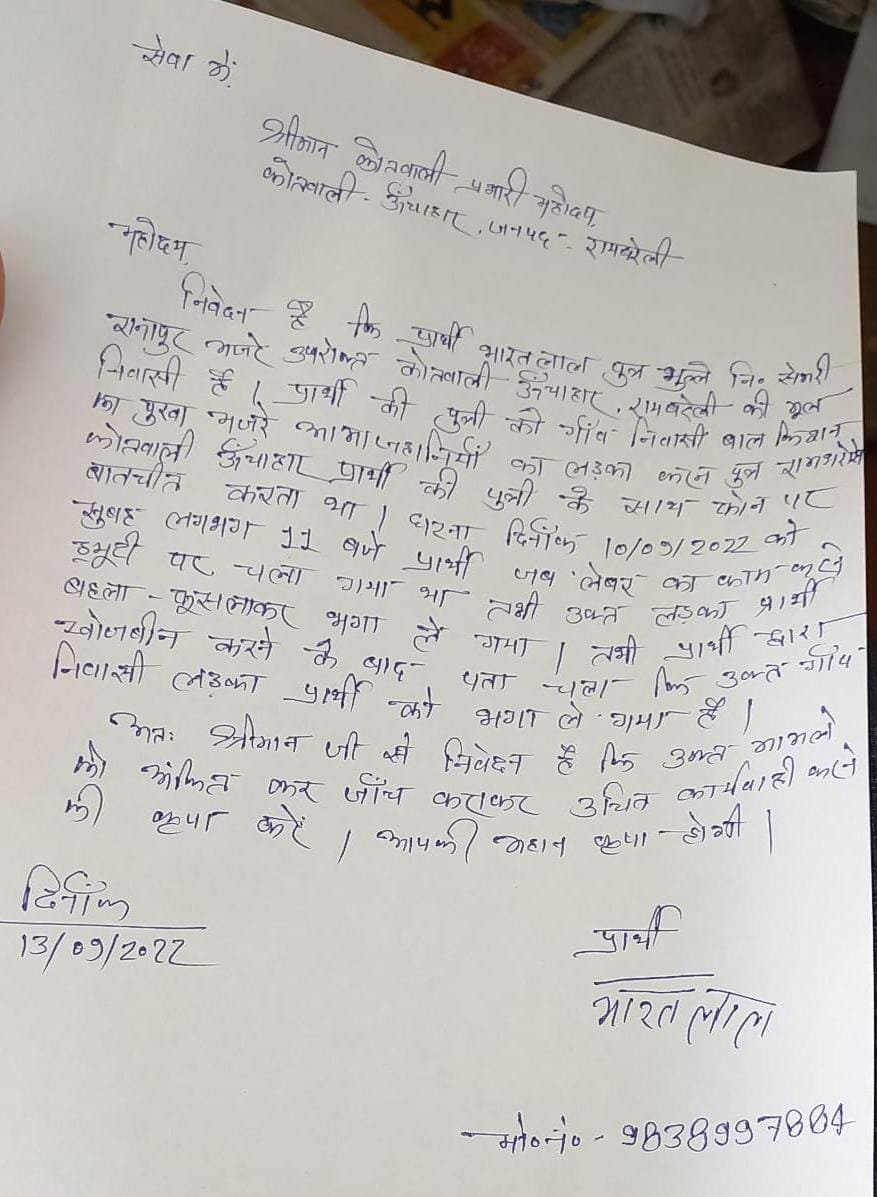 सेवा में,
श्रीमान कोतवाली प्रभारी महोदय,
कोतवाली - ऊँचाहार, जनपद - रायबरेली
महोदय,
निवेदन है कि प्रार्थी भारतलाल पुत्र भुल्ले नि० सेमरी
रानापुर मजरे उपरोक्त कोतवाली ऊँचाहार, रायबरेली की मूल
निवासी है। प्रार्थी की पुत्री को गाँव निवासी बाल किशन
का पुरवा मजरे का लड़का करन पुत्र रामभरोसे
कोतवाली ऊँचाहार प्रार्थी की पुत्री के साथ फोन पर
बातचीत करता था। घटना दिनाँक 10/09/2022 को
सुबह लगभग 11 बजे प्रार्थी जब लेबर का काम करने
ड्यूटी पर चला गया था तभी उक्त लड़का प्रार्थी
बहला - फुसलाकर भगा ले गया। तभी प्रार्थी द्वारा
खोजबीन करने के बाद पता चला कि उक्त गाँव
निवासी लड़का प्रार्थी को भगा ले गया है।
अतः श्रीमान जी से निवेदन है कि उक्त मामले
को अंकित कर जाँच कराकर उचित कार्यवाही करने
की कृपा करें। आपकी महान कृपा होगी।
दिनाँक
13/09/2022
प्रार्थी
भारतलाल
मो०नं० - 9838997884